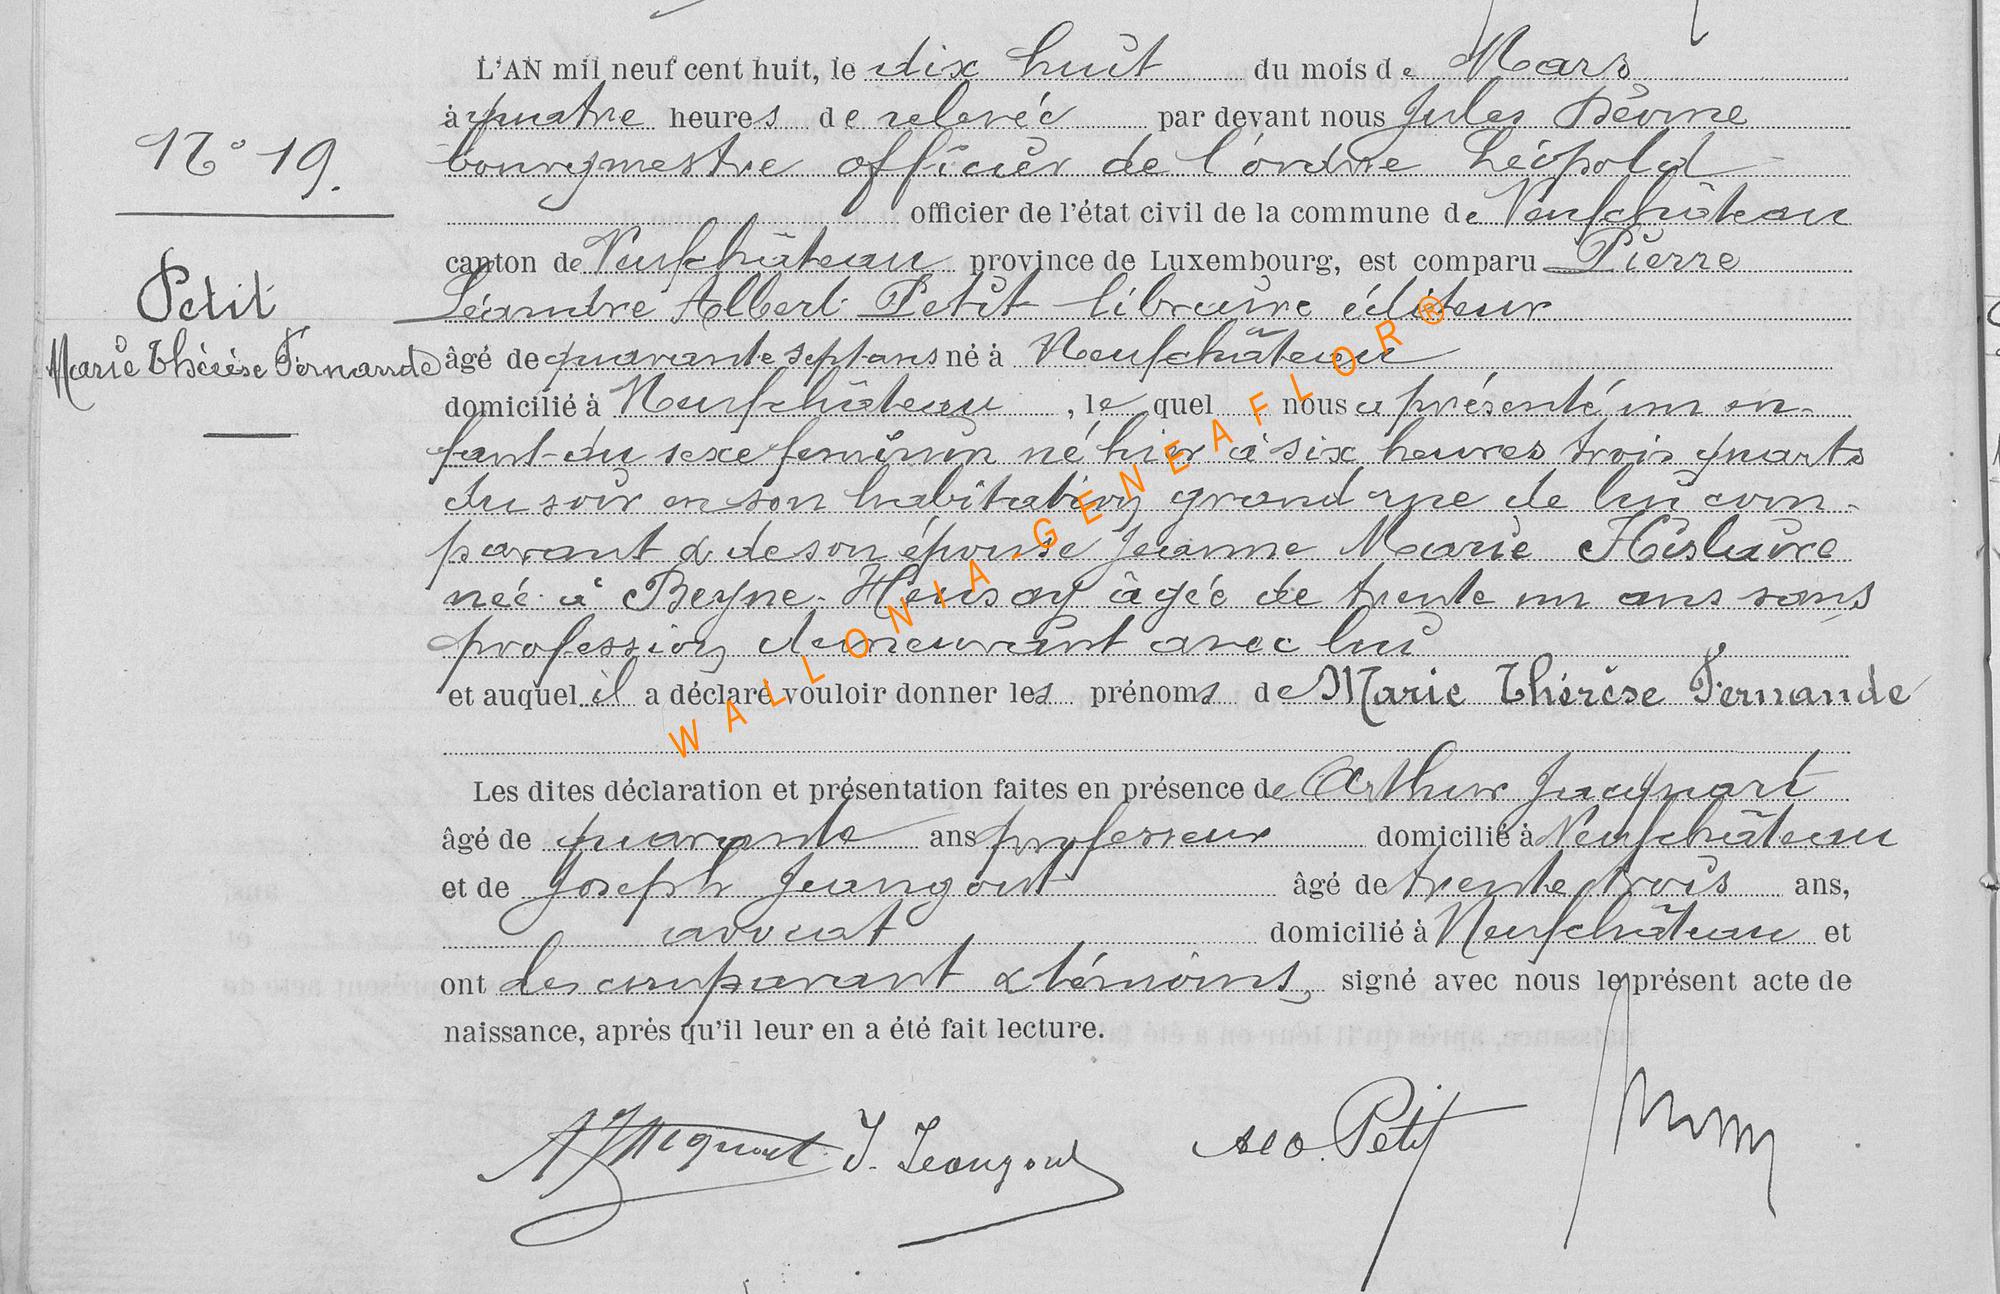 L'AN mil neuf cent huit, le dix huit du mois de Mars
à quatre heures de relevée par devant nous Jules
N° 19.
bourgmestre officier de l'ordre Léopold
officier de l'état civil de la commune de Neufchâteau
canton de Neufchâteau province de Luxembourg, est comparu Pierre
Petit
Léandre Albert Petit libraire éditeur
Marie Thérèse Fernande
âgé de quarante sept ans né à Neufchâteau
domicilié à Neufchâteau, le quel nous a présenté un en-
fant du sexe féminin né hier à six heures trois quarts
du soir en son habitation grand rue de lui com-
parant & de son épouse Jeanne Marie Hislaire
née à Beyne-Heusay âgée de trente un ans sans
profession demeurant avec lui
et auquel il a déclaré vouloir donner les prénoms de Marie Thérèse Fernande
Les dites déclaration et présentation faites en présence de Arthur Jacquart
âgé de quarante ans professeur domicilié à Neufchâteau
et de Joseph Jeangout âgé de trente trois ans,
avocat domicilié à Neufchâteau et
ont les comparant & témoins, signé avec nous le présent acte de
naissance, après qu'il leur en a été fait lecture.
A Jacquart J. Jeangout Petit
WALLONIA-GENEAFLOR®